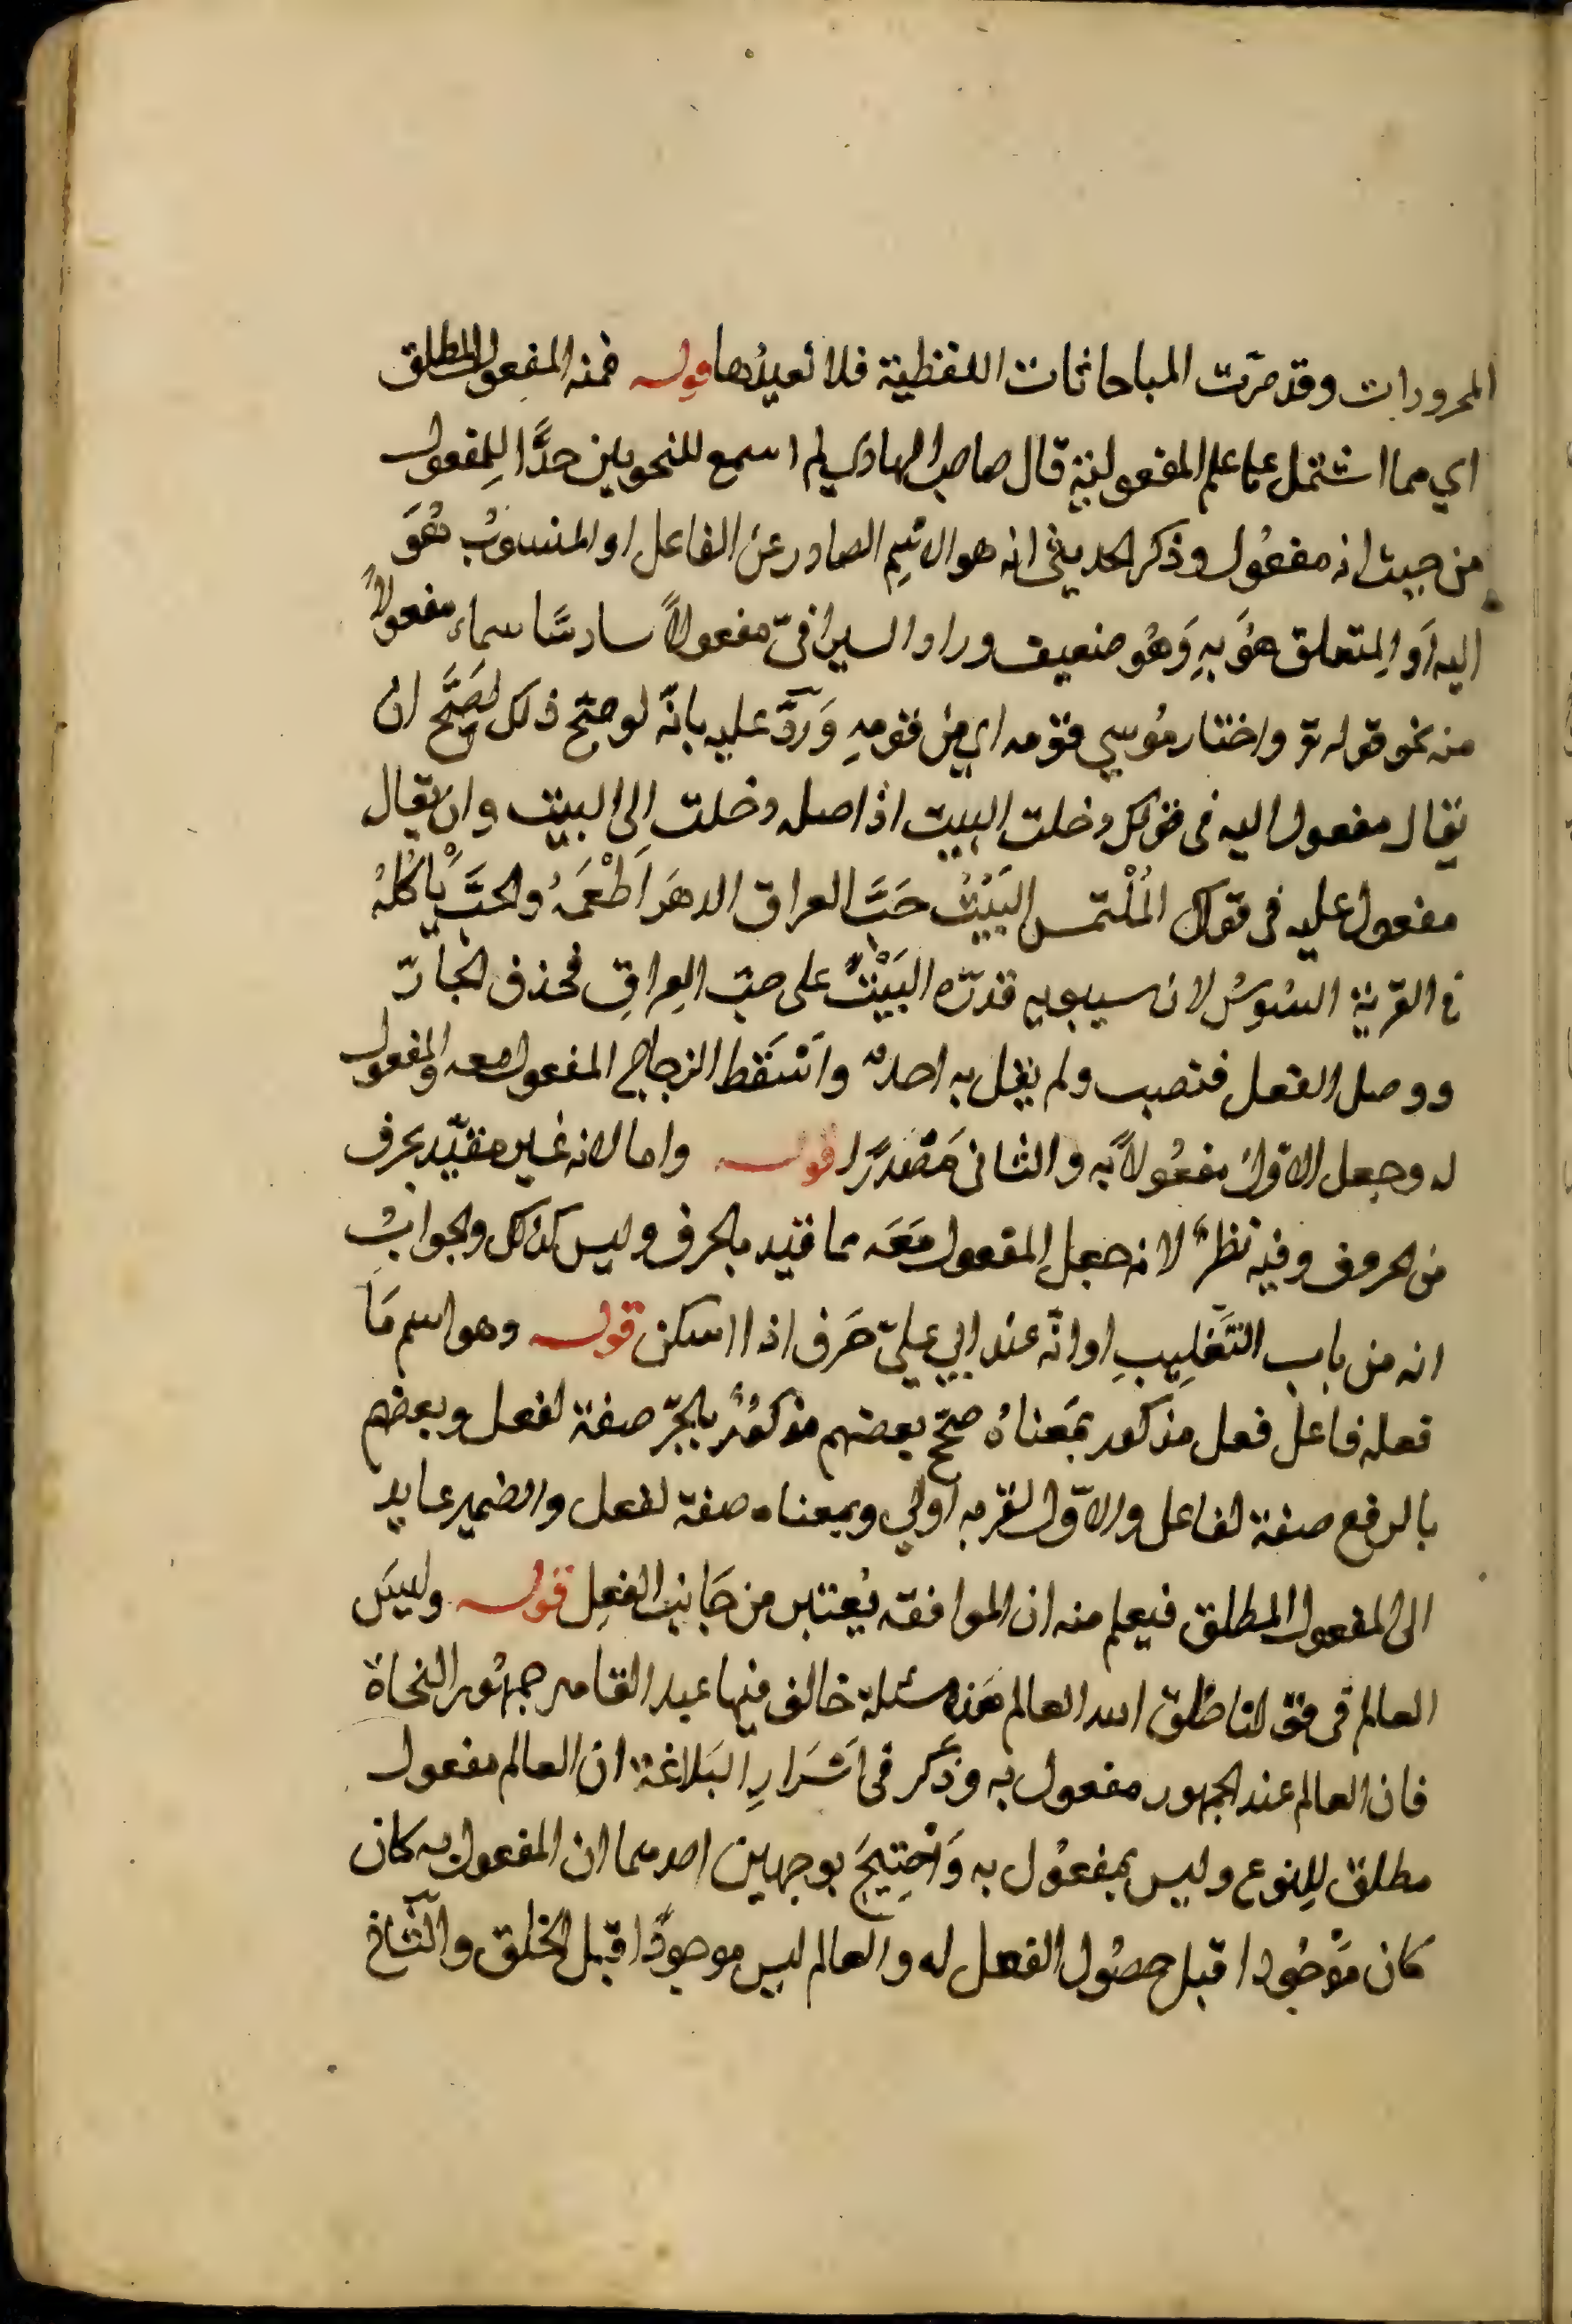 المجرورات وقد مرّت المباحاثات اللفظية فلا نعيدُها قوله فمنه المفعول المطلق
اي مما اشتمل على علم المفعولية قال صاحب الهادي لم اسمع للنحويين حدًّا لِلمفعول
من حيث انه مفعُول وذكر الحديثي انه هو الاسم الصادر عن الفاعل او المنسوبُ هُوَ
اليه اَو المتعلق هُوَ بِهِ وَهُو ضعيف وزاد السيرافيّ مفعولاً سادسًا سماه مفعولاً
منه نحو قوله تع واختار مُوسي قومه اي مِن قومهِ وَرُدَّ عليه بانّه لو صحّ ذلك لصَحَّ ان
يقال مفعول اليه في قولك دخلت البيت اذ اصله دخلت اِلى البيت وان يقال
مفعول عليه في قول المُلْتمس اليَتُ حَبَّ العراق الدهرَ اَطْعَمُهُ والحبُّ يَأكلهُ
في القرية السُوسُ لان سيبويه قدرّه اليَتُ على حبّ العِراقِ فحذف الجارّ
ووصل الفعل فنصب ولم يقل به احدٌ واَسْقَط الزجاج المفعول معه والمفعول
له وجعل الاوّل مفعُولاً به والثاني مَصْدرًا قوله واما لانه غير مقيّد بحرف
من الحروف وفيه نظرٌ لانه جعل المفعول مَعَه مما قيد بالحرف وليس كذلك والجوابُ
انه من باب التَغلِيبِ او انّه عند ابي عليّ حَرف اذا اسكن قوله وهو اسم مَا
فعله فاعل فعل مذكور بمَعناهُ صحّح بعضهم مذكُورٌ بالجرّ صفة لفعل وبعضهم
بالرفع صفة لفاعل والاوّل لقربه اَولي وبمعناه صفة لفعل والضمير عايد
الى المفعول المطلق فيعلم منه ان الموافقه يُعتبر من جَانِب الفعِل قوله وليسَ
العالم في قولنا خلق الله العالم هَذِه مسئلة خالف فيها عبد القاهر جمهُور النحاة
فان العالم عند الجمهور مفعول به وذَكر في اَسْرَارِ البَلاغة ان العالم مفعول
مطلق لِلنوع وليس بمفعُول به وَاُحْتِيجَ بوجهين احدهما ان المفعول به كان
كان مَوْجُودا قبل حصُول الفعل له والعالم ليس موجودًا قبل الخلق والثاني